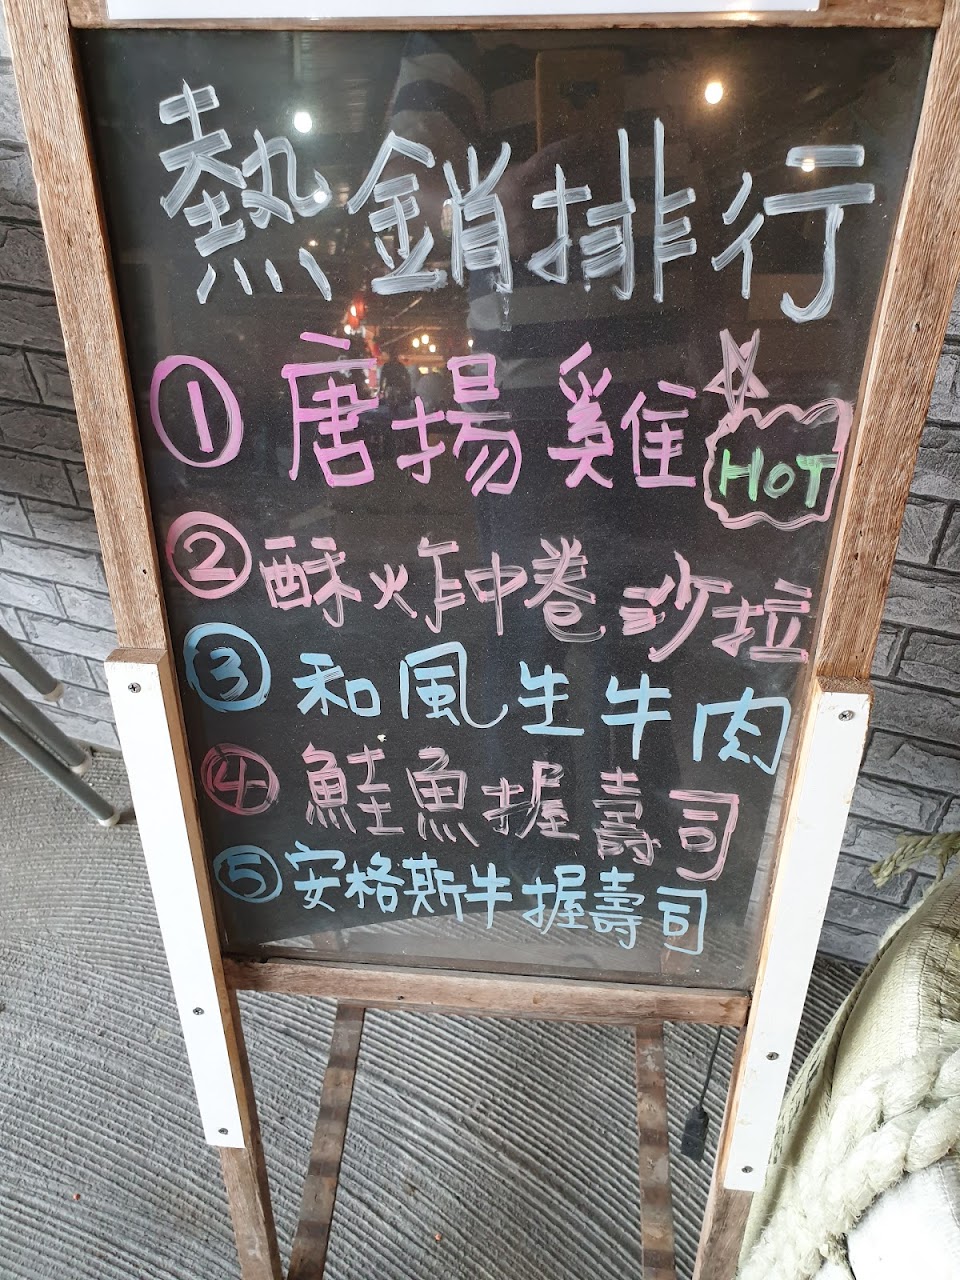 熱銷排行
① 唐揚雞 HOT
② 酥炸中卷沙拉
③ 和風生牛肉
④ 鮭魚握壽司
⑤ 安格斯牛握壽司